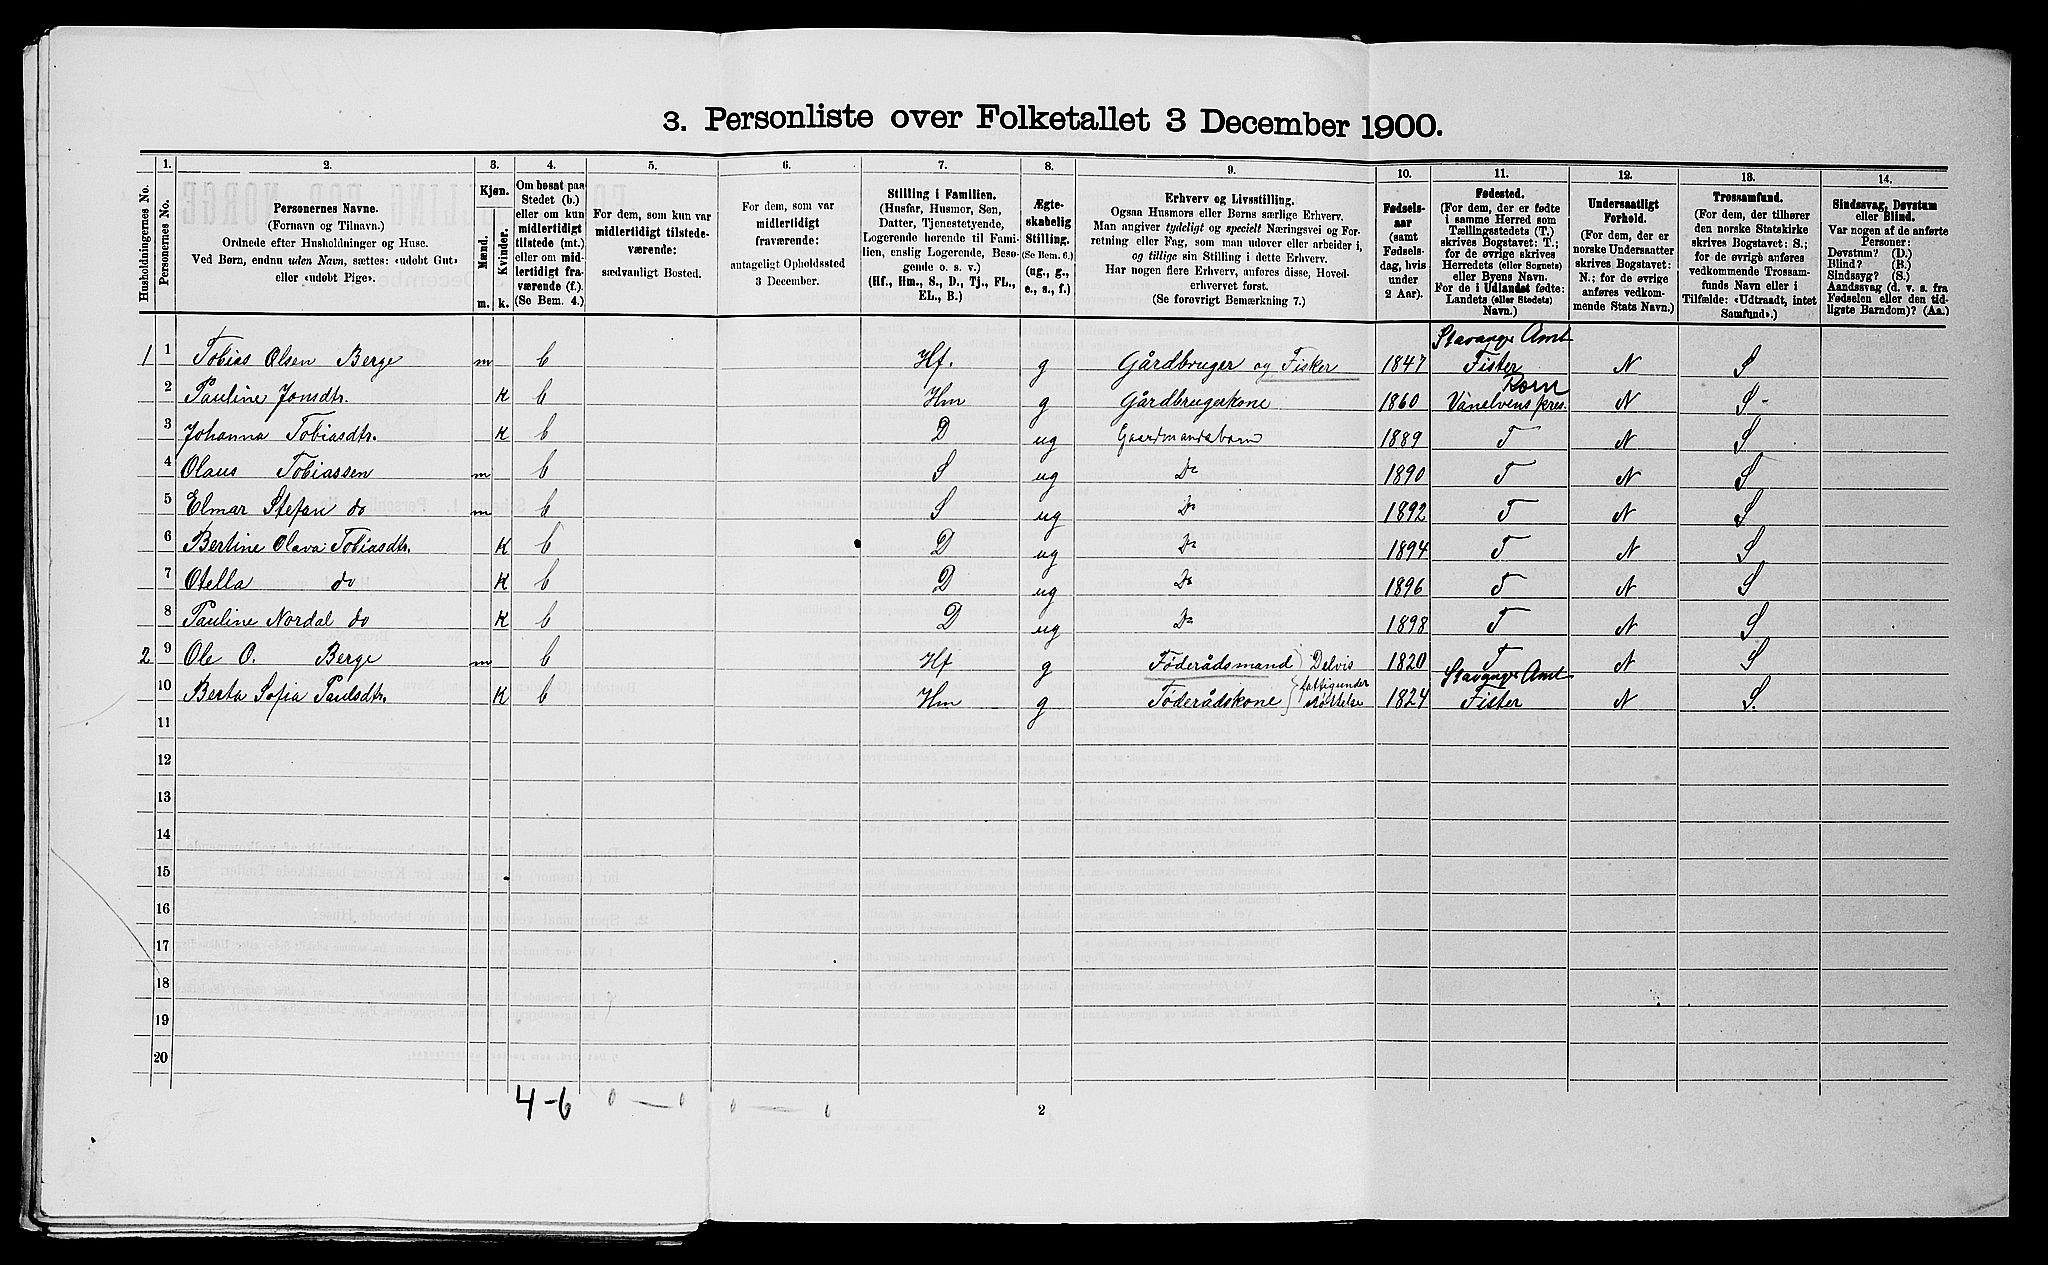 3. Personliste over Folketallet 3 December 1900.
Husholdningernes No.
1. Personernes No.
2. Personernes Navne.
(Fornavn og Tilnavn.)
Ordnede efter Husholdninger og Huse.
Ved Børn, endnu uden Navn, sættes: «udøbt Gut»
eller «udøbt Pige».
3. Kjøn.
Mænd. Kvinder.
m. k.
4. Om bosat paa
Stedet (b.)
eller om kun
midlertidigt
tilstede (mt.)
eller om mid-
lertidigt fra-
værende (f.).
(Se Bem. 4.)
5. For dem, som kun var
midlertidigt tilstede-
værende:
sædvanligt Bosted.
6. For dem, som var
midlertidigt
fraværende:
antageligt Opholdssted
3 December.
7. Stilling i Familien.
(Husfar, Husmor, Søn,
Datter, Tjenestetyende,
Logerende hørende til Fami-
lien, enslig Logerende, Besø-
gende o. s. v.)
(Hf., Hm., S., D., Tj., FL.,
EL., B.)
8. Ægte-
skabelig
Stilling.
(Se Bem. 6.)
(ug., g.,
e., s., f.)
9. Erhverv og Livsstilling.
Ogsaa Husmors eller Børns særlige Erhverv.
Man angiver tydeligt og specielt Næringsvei og For-
retning eller Fag, som man udover eller arbeider i,
og tillige sin Stilling i dette Erhverv.
Har nogen flere Erhverv, anføres disse, Hoved-
erhvervet først.
(Se forøvrigt Bemærkning 7.)
10. Fødsels-
aar
(samt
Fødsels-
dag, hvis
under
2 Aar).
11. Fødested.
(For dem, der er fødte
i samme Herred som
Tællingsstedets (T.)
skrives Bogstavet: T.;
for de øvrige skrives
Herredets (eller Sognets)
eller Byens Navn.
For de i Udlandet fødte:
Landets (eller Stedets)
Navn.)
12. Undersaatligt
Forhold.
(For dem, der er
norske Undersaatter
skrives Bogstavet:
N.; for de øvrige
anføres vedkom-
mende Stats Navn.)
13. Trossamfund.
(For dem, der tilhører
den norske Statskirke
skrives Bogstavet: S.;
for de øvrige anføres
vedkommende Trossam-
funds Navn eller i
Tilfælde: «Udtraadt, intet
Samfund».)
14. Sindssvag, Døvstum
eller Blind.
Var nogen af de anførte
Personer:
Døvstum? (D.)
Blind? (B.)
Sindssyg? (S.)
Aandssvag (d. v. s. fra
Fødselen eller den tid-
ligste Barndom)? (Aa.)
1 1 Tobias Olsen Berge m b Hf. g Gårdbruger og Fisker 1847 Stavanger Amt Fister N S
2 Pauline Jonsdtr. K b Hm g Gårdbrugerkone 1860 Vanelvens pres. Rom N S
3 Johanna Tobiasdtr. K b D ug Gaardmandsbarn 1889 T N S
4 Olaus Tobiassen m b S ug Do 1890 T N S
5 Elmar Stefan do m b S ug Do 1892 T N S
6 Bertine Olava Tobiasdtr. K b D ug Do 1894 T N S
7 Otella do K b D ug Do 1896 T N S
8 Pauline Nordal do K b D ug Do 1898 T N S
2 9 Ole O. Berge m b Hf g Føderådsmand } Delvis 1820 T N S
10 Berta Sofia Paulsdtr. K b Hm g Føderådskone } fattigunder støttelse 1824 Stavanger Amt Fister N S.
11
12
13
14
15
16
17
18
19
20
4-6 0 — 0 0 — 0
2